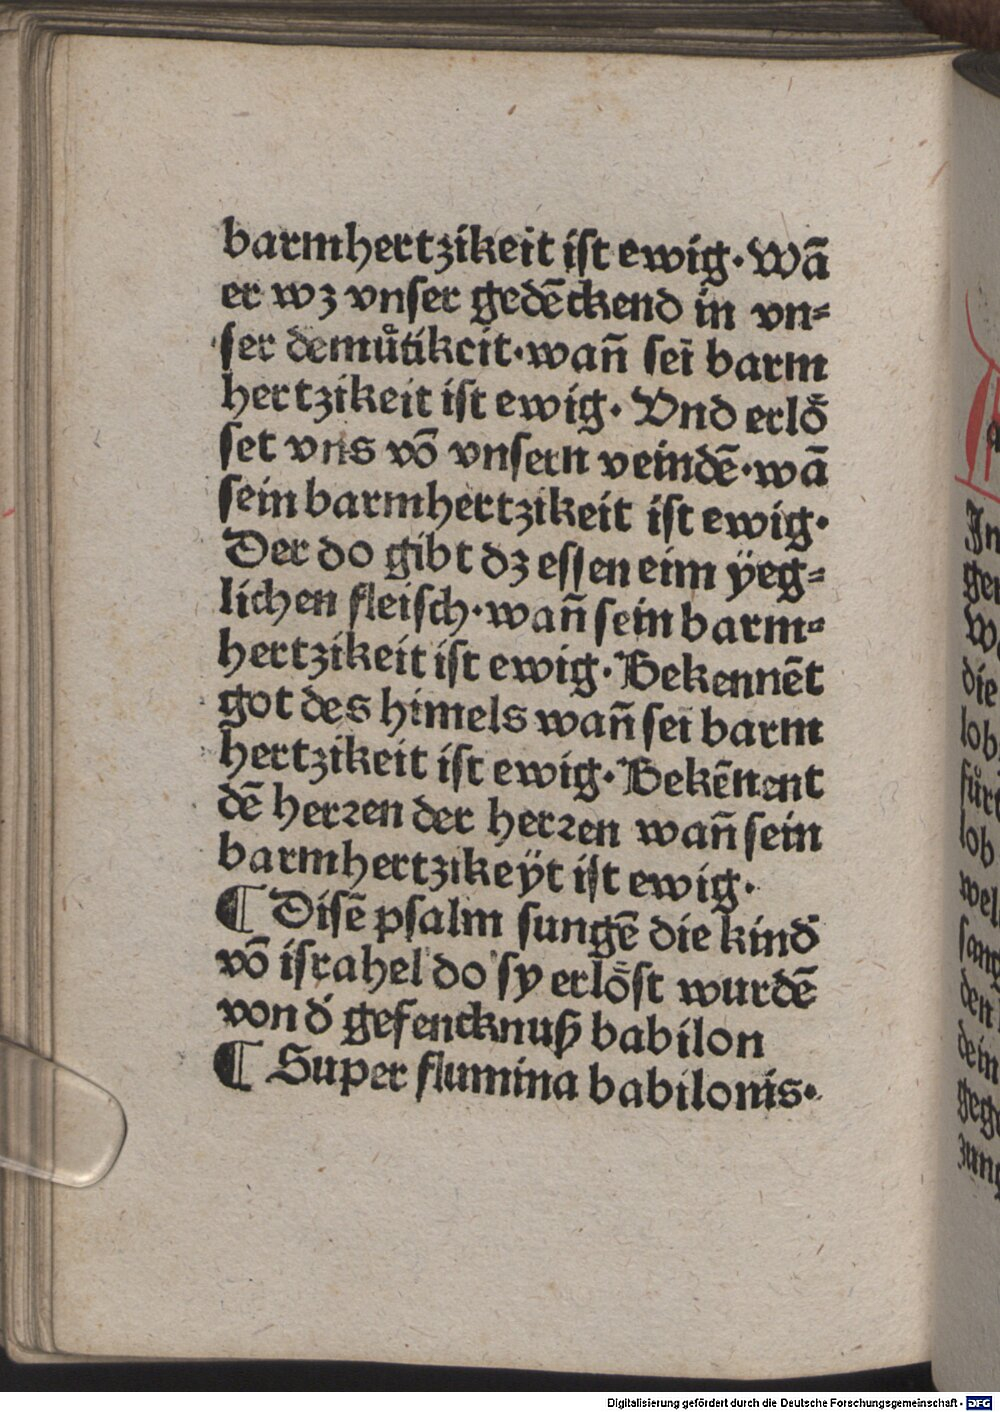 barmhertzikeit ist ewig. Wā
er wz vnser gedēckend in vn⸗
ser demuͤtikeit. wañ sei barm
hertzikeit ist ewig. Vnd erloͤ
set vns vō vnsern veindē. wā
sein barmhertzikeit ist ewig.
Der do gibt dz essen eim ÿeg⸗
lichen fleisch. wañ sein barm⸗
hertzikeit ist ewig. Bekennēt
got des himels wañ sei barm
hertzikeit ist ewig. Bekēnent
dē herren der herren wañ sein
barmhertzikeÿt ist ewig.
¶ Disē psalm sungē die kind̕
vō israhel do sy erloͤst wurdē
von d̕ gefencknuß babilon
¶ Super flumina babilonis.
In
die
lob
lob
den
dein
Digitalisierung gefördert durch die Deutsche Forschungsgemeinschaft - DFG